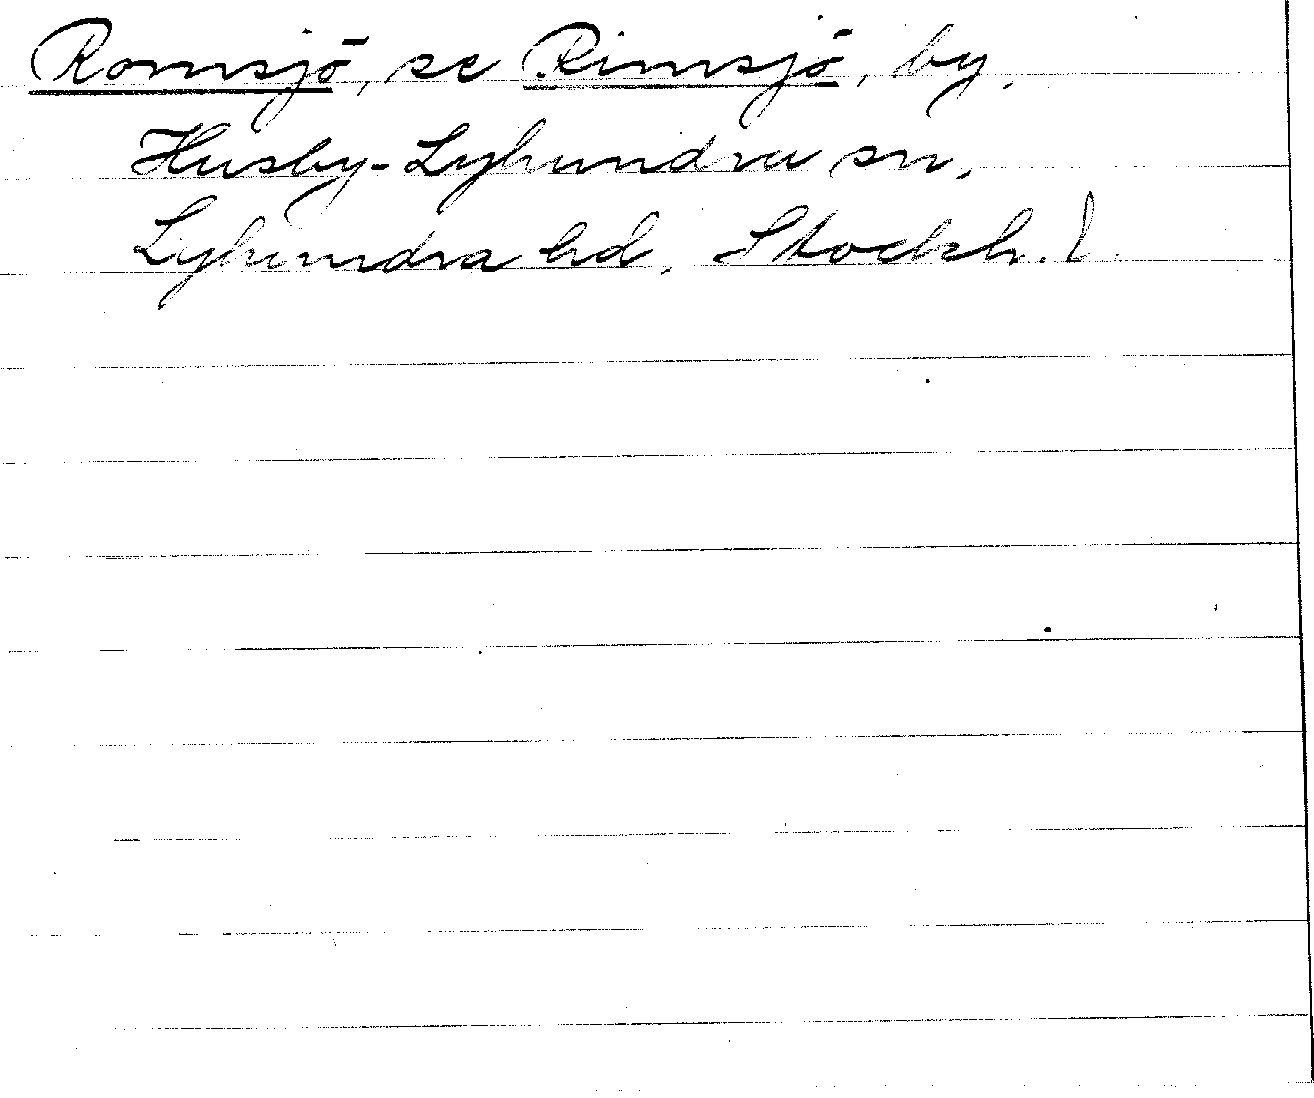 Romsjö, se Rimsjö, by,
Husby-Lyhundra sn,
Lyhundra hd, Stockh. l.